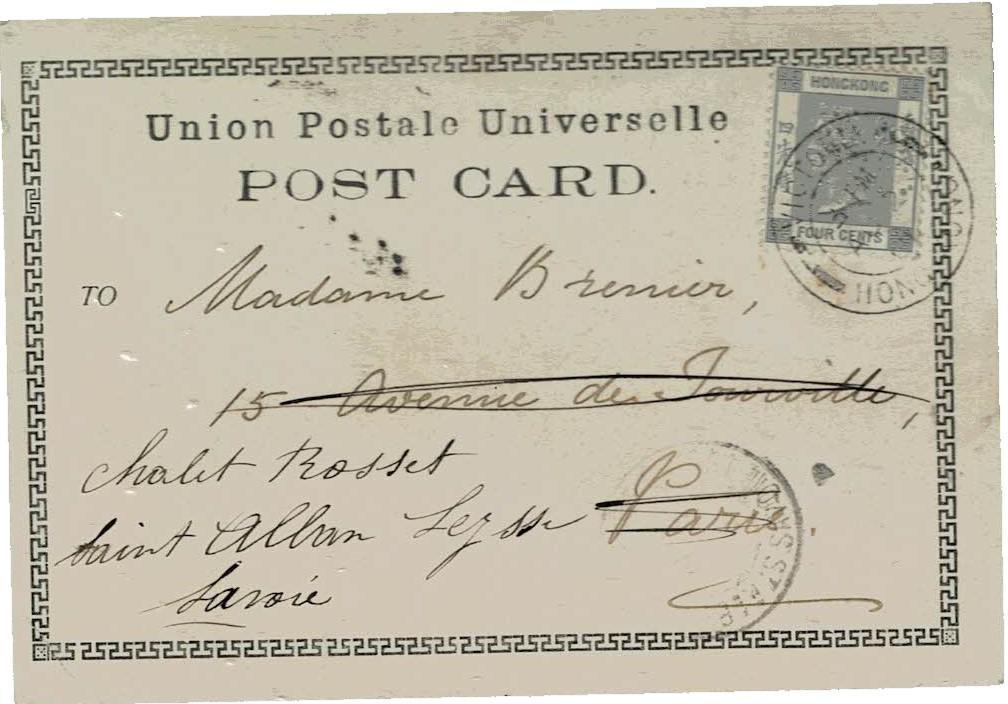 Union Postale Universelle
POST CARD.
HONGKONG
FOUR CENTS
VICTORIA
HONG
TO Madame Brenier,
15 Avenue de Tourville,
Chalet Rosset
Paris.
Saint Alban Leysse
Savoie